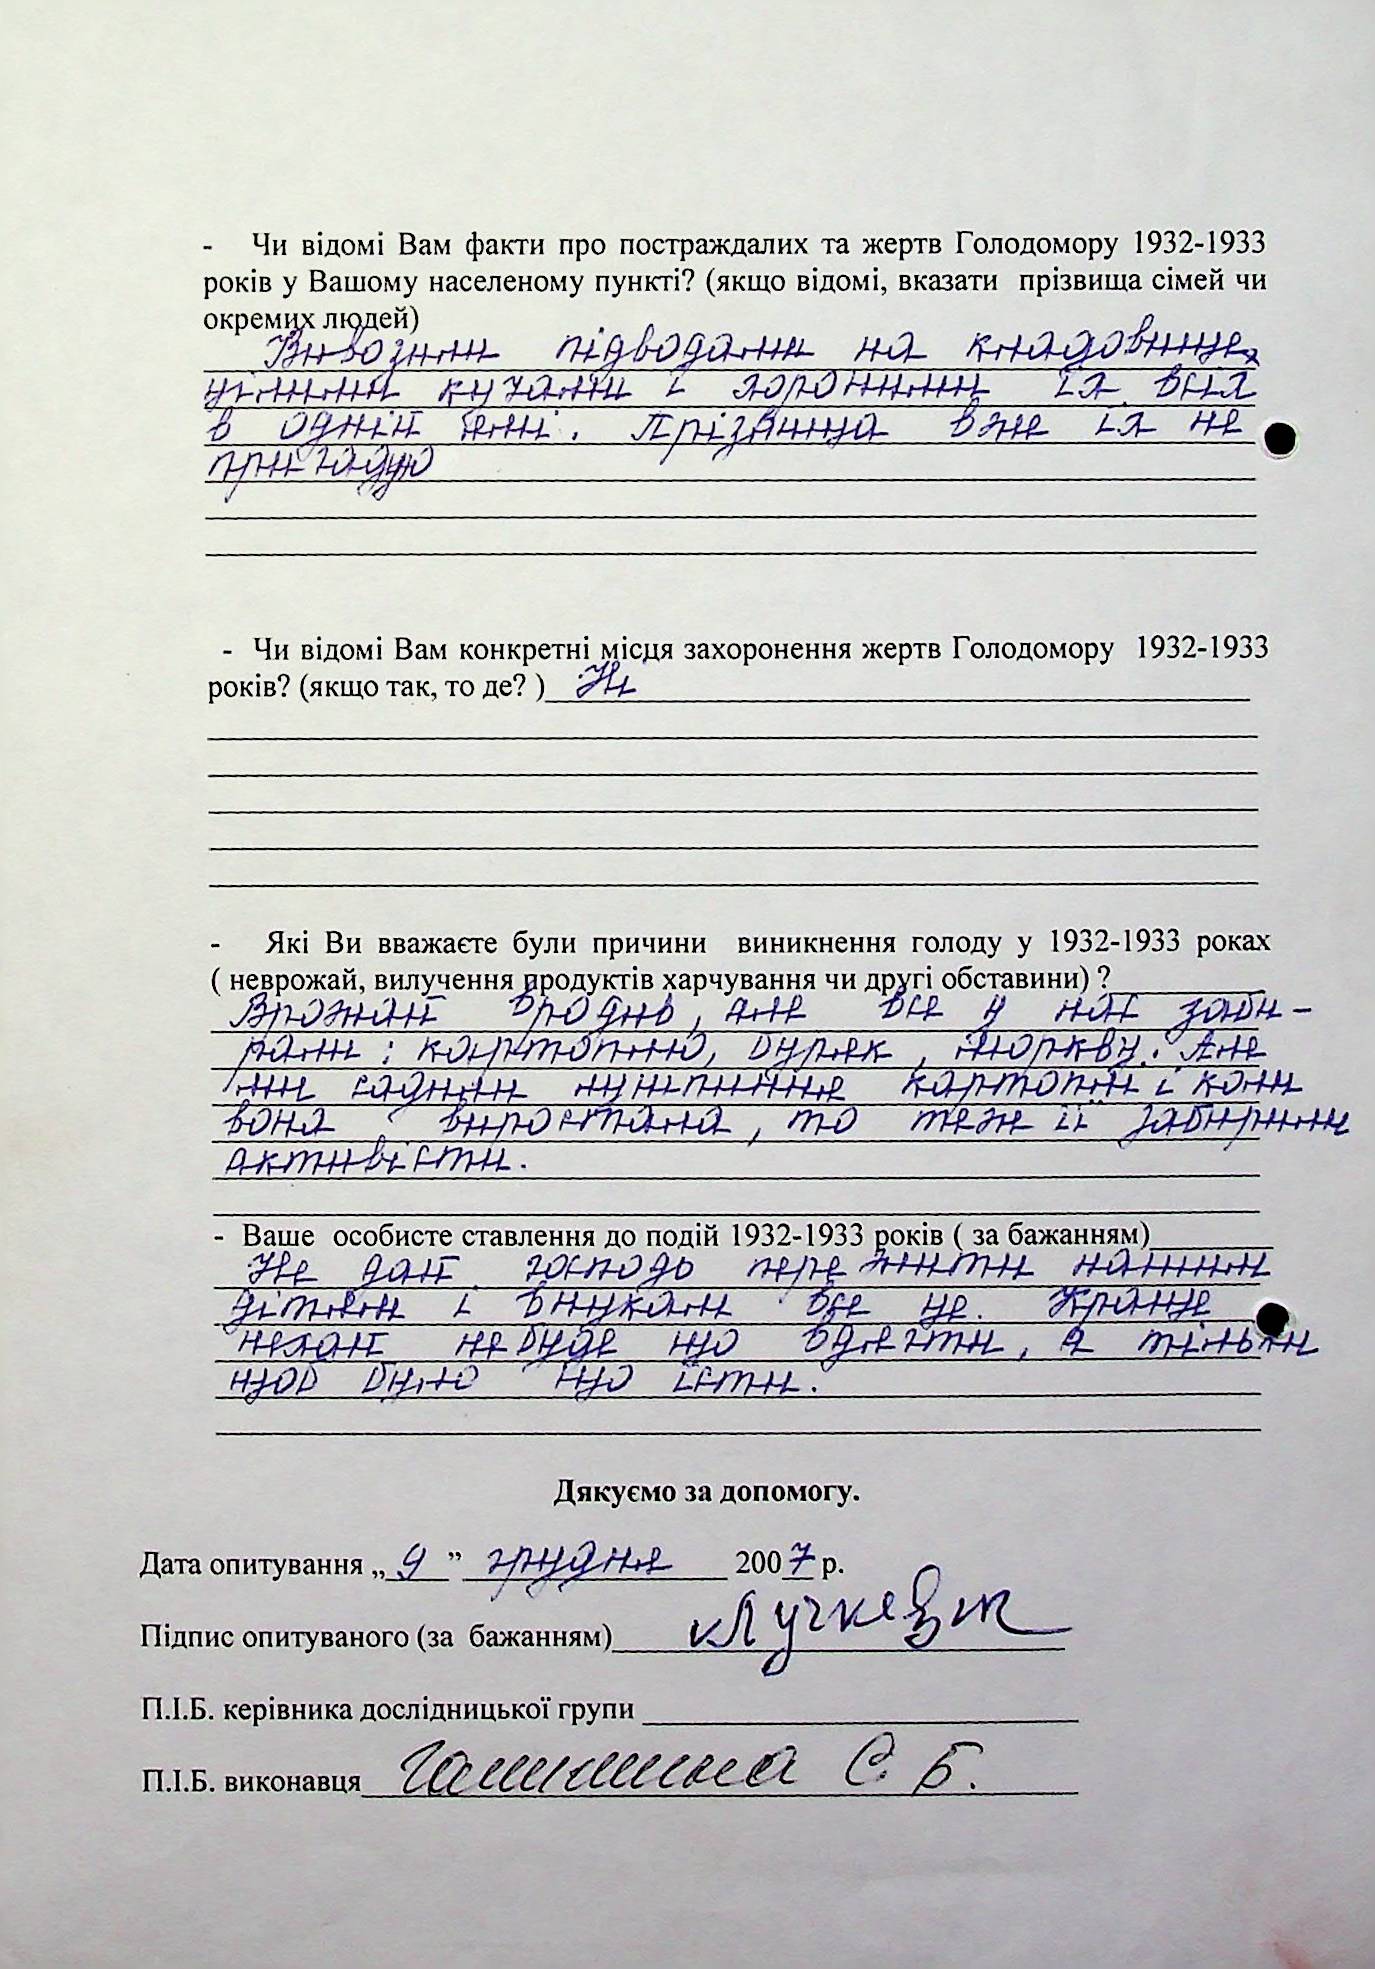 - Чи відомі Вам факти про постраждалих та жертв Голодомору 1932-1933
років у Вашому населеному пункті? (якщо відомі, вказати прізвища сімей чи
окремих людей)
Вивозили підводами на кладовище,
цілими кучами і хоронили їх всіх
в одній ямі. Прізвища вже їх не
пригадую
- Чи відомі Вам конкретні місця захоронення жертв Голодомору 1932-1933
років? (якщо так, то де? ) Ні
- Які Ви вважаєте були причини виникнення голоду у 1932-1933 роках
( неврожай, вилучення продуктів харчування чи другі обставини) ?
Врожай вродив, але все у нас заби-
рали: картоплю, буряк, моркву. Але
ми садили лушпиння картоплі і коли
вона виростала, то теж її забирали
активісти.
- Ваше особисте ставлення до подій 1932-1933 років ( за бажанням)
Не дай господь пережити нашим
дітям і внукам все це. Краще
нехай не буде що вдягти, а тільки
щоб було що їсти.
Дякуємо за допомогу.
Дата опитування „ 9 ” грудня 2007 р.
Підпис опитуваного (за бажанням)
П.І.Б. керівника дослідницької групи
П.І.Б. виконавця С. Б.